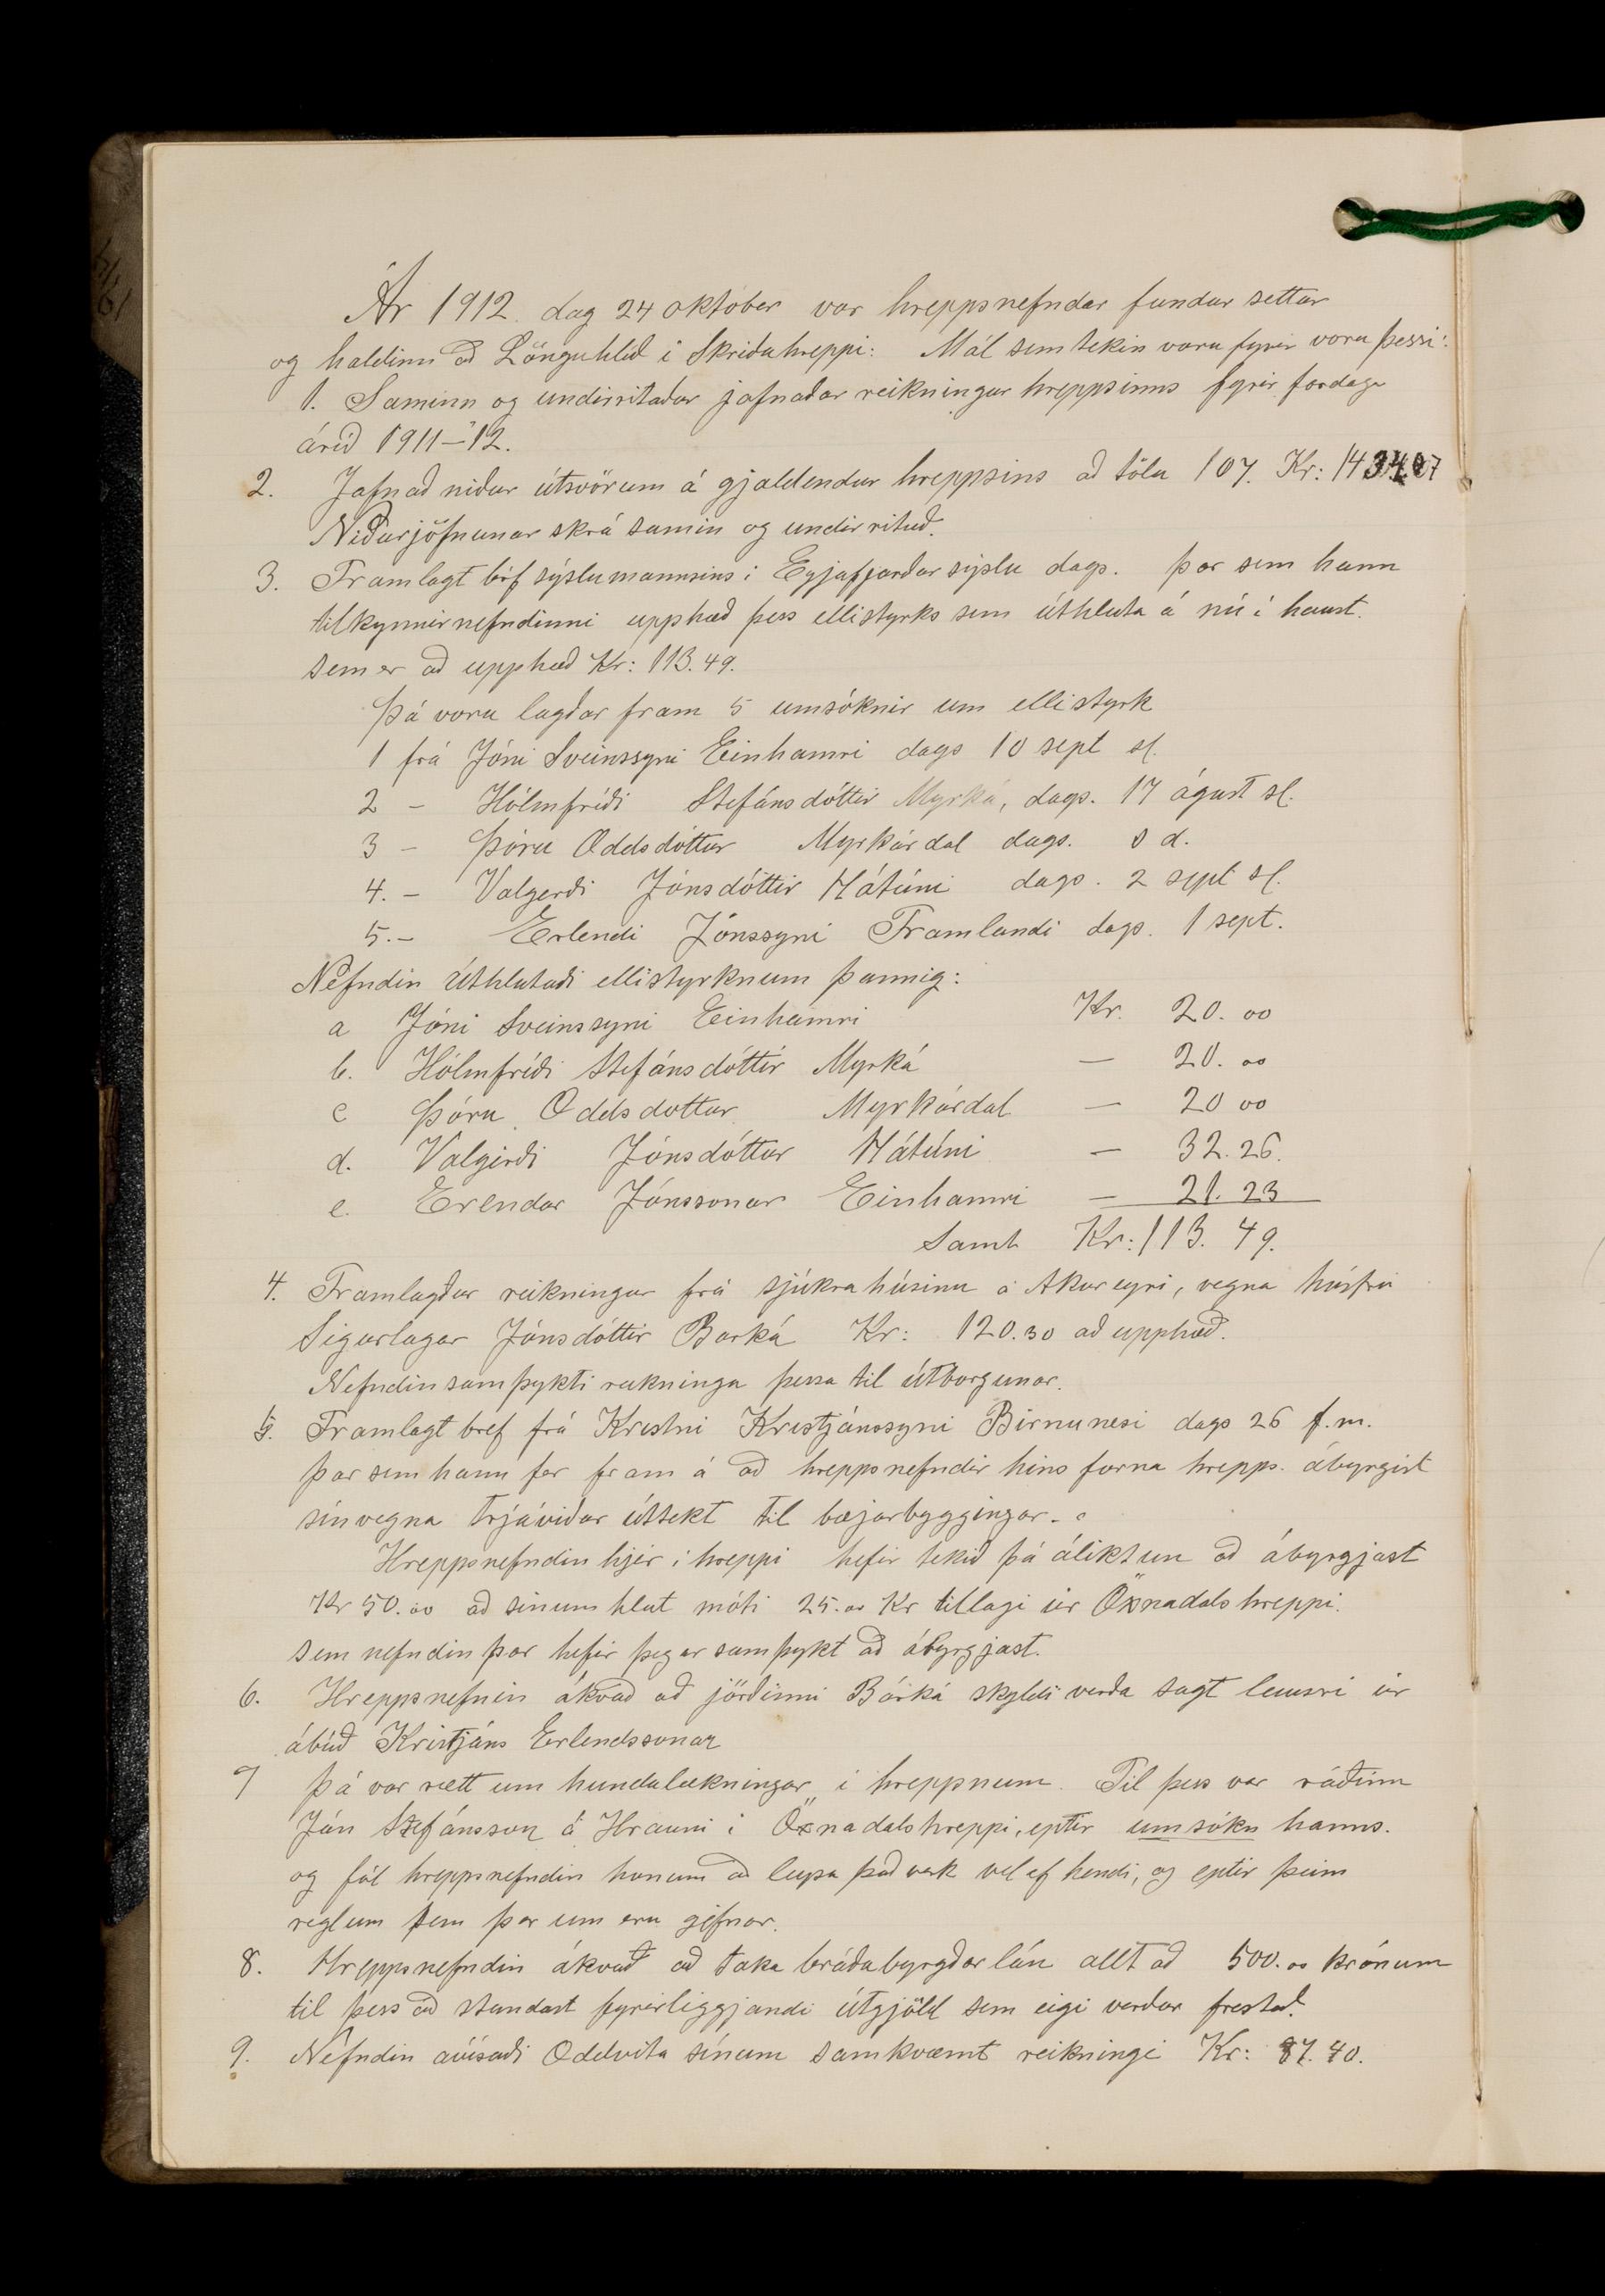 Ár 1912. dag 24 október var hreppsnefndar fundur settur
og haldinn að Lönguhlíð í Skriðuhreppi: Mál sem tekin voru fyrir voru þessi:
1. Saminn og undirritaður jafnaðar reikningur hreppsinns fyrir fardaga
árið 1911–'12.
2. Jafnað niður útsvörum á gjaldendur hreppsins að tölu 107. Kr: 1434.07
Niðurjöfnunar skrá samin og undirrituð.
3. Framlagt bréf sýslumannsins í Eyjafjarðarsýslu dags. þar sem hann
tilkynnir nefndinni upphæð þess ellistyrks sem úthluta á nú í haust.
sem er að upphæð Kr: 113.49.
Þá voru lagðar fram 5 umsóknir um ellistyrk
1 frá Jóni Sveinssyni Einhamri dags 10 sept sl.
2 – Hólmfríði Stefánsdóttir Myrká, dags. 17 ágúst sl.
3 – Þóru Oddsdóttur Myrkárdal dags. s d.
4. – Valgerði Jónsdóttir Hátúni dags. 2 sept sl.
5. – Erlendi Jónssyni Framlandi dags. 1 sept.
Nefndin úthlutaði ellistyrknum þannig:
a Jóni Sveinssyni Einhamri Kr. 20. oo
b. Hólmfríði Stefánsdóttir Myrká — 20. oo
c Þóru Oddsdottur Myrkárdal — 20 oo
d. Valgirði Jónsdóttur Hátúni — 32. 26.
e. Erendar Jónssonar Einhamri — 21. 23
Samt Kr: 113. 49.
4. Framlagður reikningur frá sjúkrahúsinu á Akureyri, vegna húsfrú
Sigurlagar Jónsdóttir Barká Kr: 120.30 að upphæð.
Nefndin samþykti reikninga þessa til útborgunar.
5. Framlagt bref frá Kristni Kristjánssyni Birnunesi dags 26 f.m.
þar sem hann fer fram á að hreppsnefndir hins forna hrepps. ábyrgist
sín vegna trjáviðar úttekt til bæjarbyggingar.
Hreppsnefndin hjér í hreppi hefir tekið þá áliktun að ábyrgjast
Kr 50.oo að sínum hlut móti 25.oo Kr tillagi úr Öxnadalshreppi.
sem nefndin þar hefir þegar samþykt að ábyrgjast.
6. Hreppsnefnin ákvað að jörðinni Bárká skyldi verða sagt lausri úr
ábúð Kristjáns Erlendssonar
7 Þá var rætt um hundalækningar í hreppnum. Til þess var ráðinn
Jón Stefánsson á Hrauni í Öxnadalshreppi, eptir umsókn hanns.
og fól hreppsnefndin honum að leysa það verk vel af hendi, og eptir þeim
reglum sem þar um eru gefnar.
8. Hreppsnefndin ákvað að taka bráðabyrgðarlán allt að 500.oo krónum
til þess að standast fyrirliggjandi útgjöld sem eigi verður frestað.
9. Nefndin ávísaði Oddvita sínum samkvæmt reikningi Kr: 87.40.